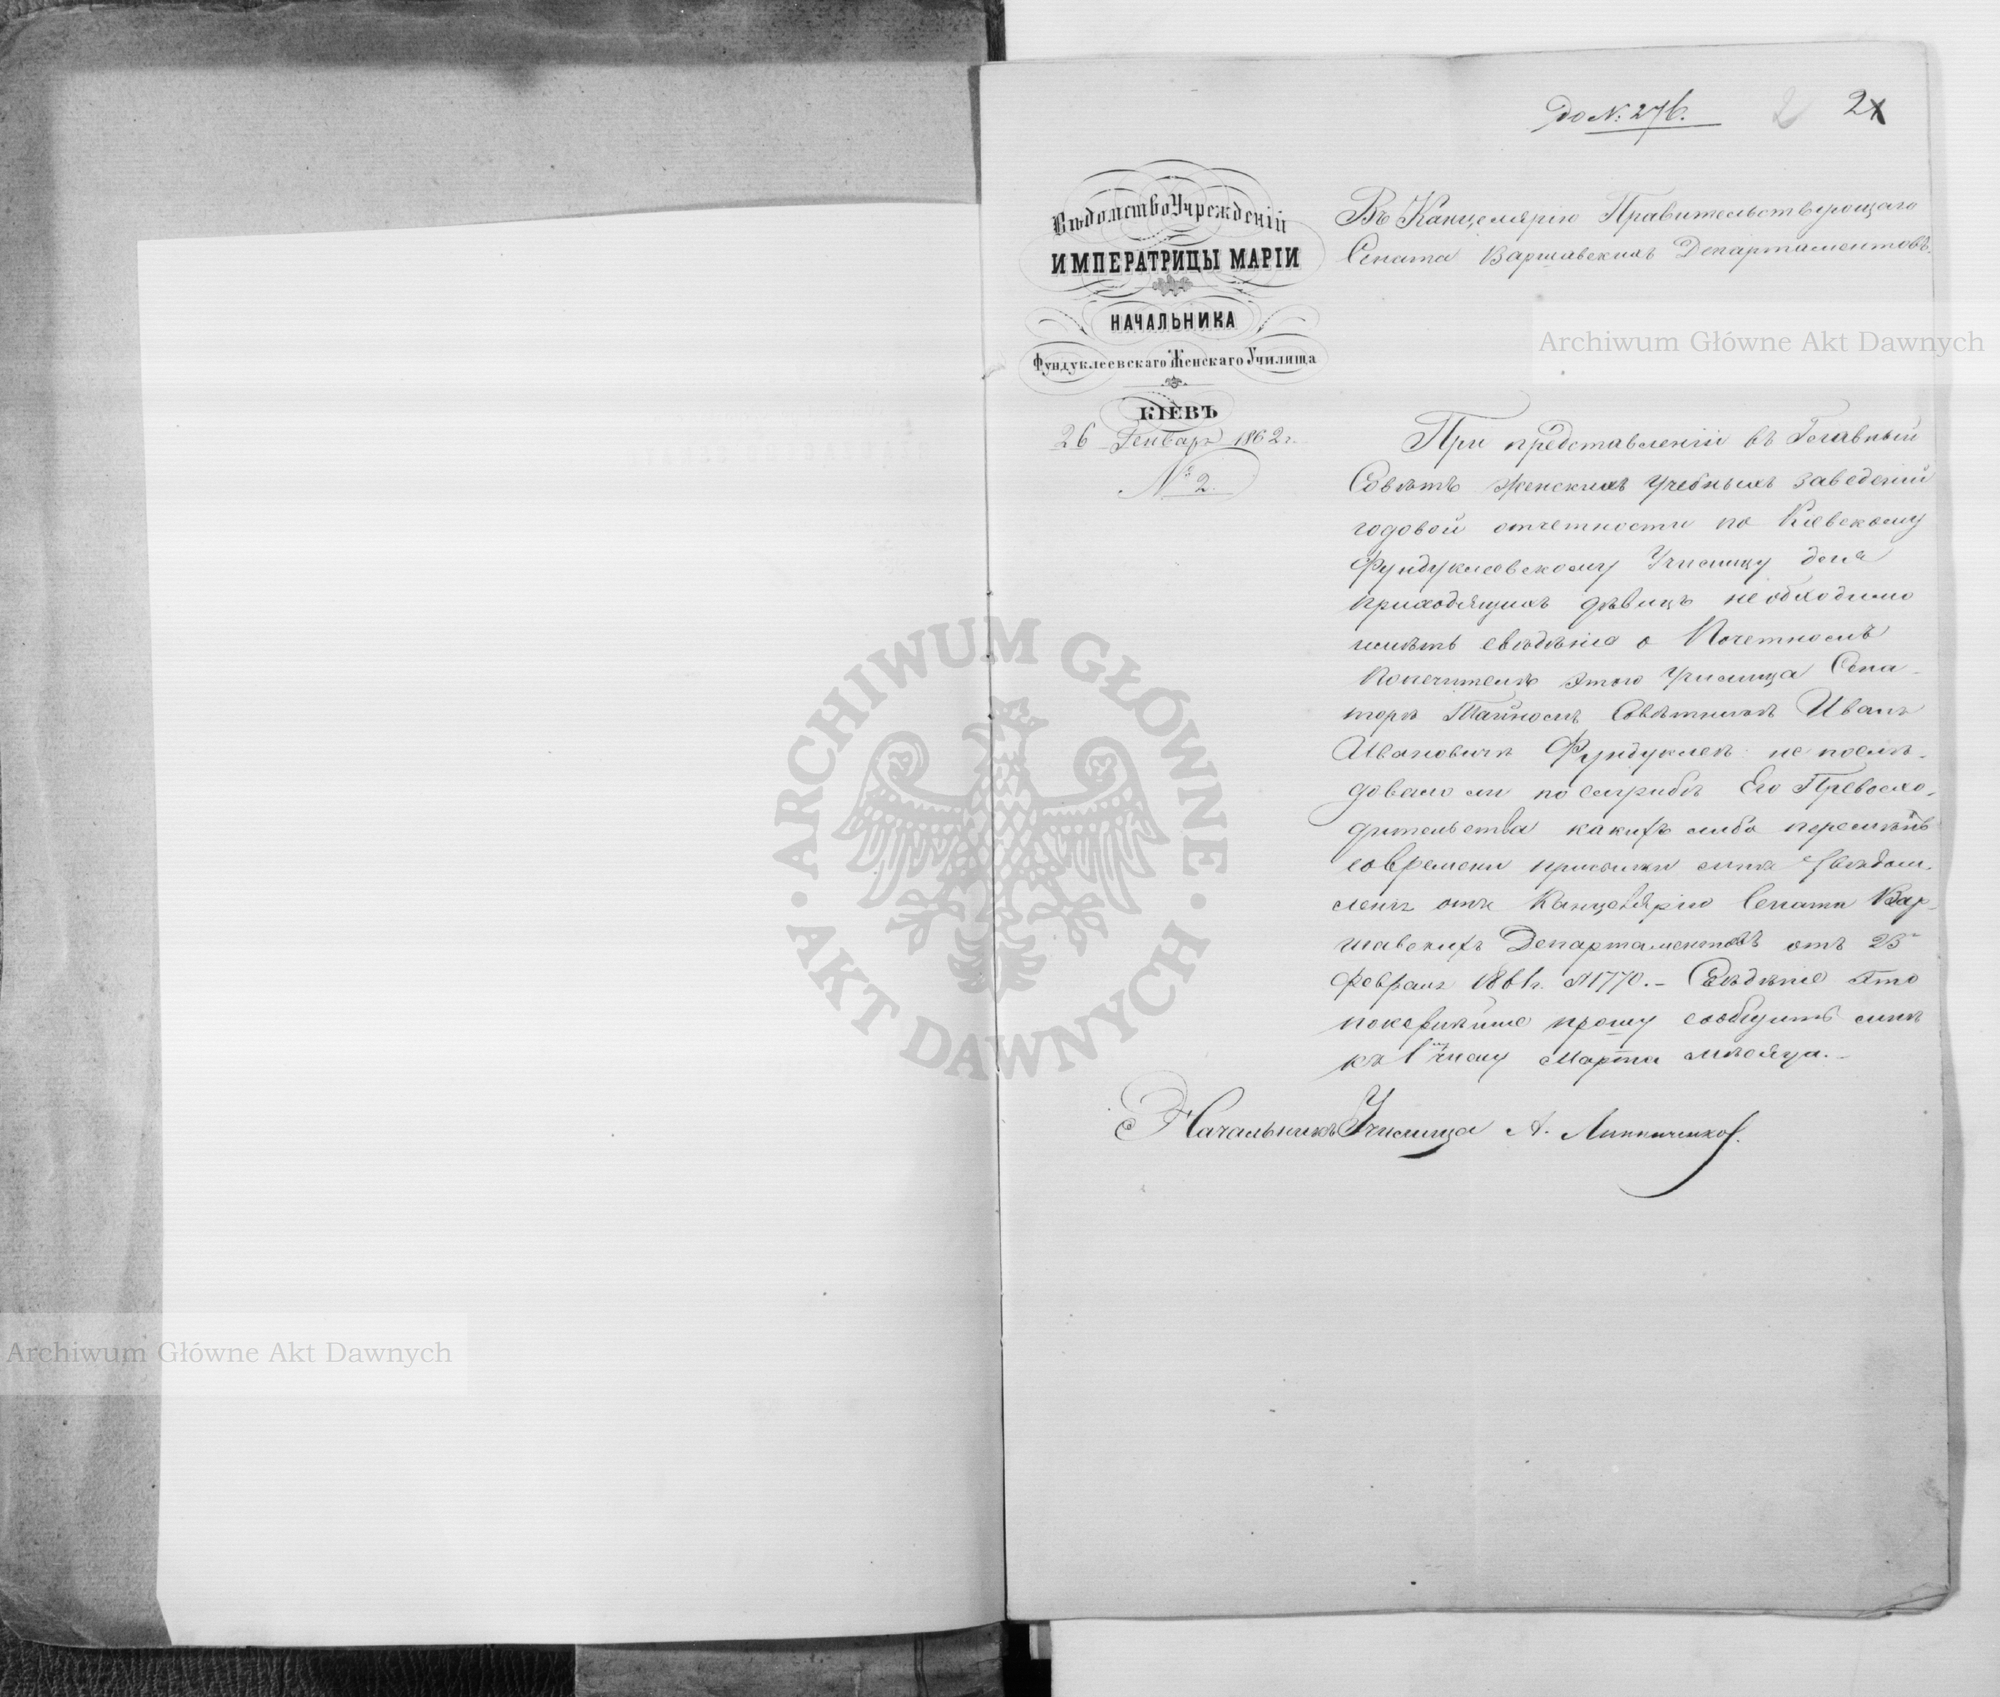 до N: 276.
2 2
Вѣдомство Учрежденій
ИМПЕРАТРИЦЫ МАРІИ
НАЧАЛЬНИКА
Фундуклеевскаго Женскаго Училища
КІЕВЪ
26 Генваря 1862 г.
№ 2.
Въ Канцелярію Правительствующаго
Сената Варшавскихъ Департаментовъ.
При представленіи въ Главный
Совѣтъ женскихъ учебныхъ заведеній
годовой отчетности по Кіевскому
Фундуклеевскому Училищу для
приходящихъ дѣвицъ необходимо
имѣть свѣдѣніе о Почетномъ
Попечителѣ этого Училища Сена-
торѣ Тайномъ Совѣтникѣ Иванѣ
Ивановичѣ Фундуклеѣ не послѣ-
довало ли по службѣ Его Превосхо-
дительства какихъ либо перемѣнъ
со времени присылки мнѣ увѣдом-
ленія отъ Канцеляріи Сената Вар-
шавскихъ Департаментовъ отъ
февраля 1861 г. N 1770. – Свѣдѣніе это
покорнѣйше прошу сообщить мнѣ
къ 1му числу Марта мѣсяца. –
Начальникъ Училища А. Линниченко
Archiwum Główne Akt Dawnych
Archiwum Główne Akt Dawnych
ARCHIWUM GŁÓWNE
AKT DAWNYCH